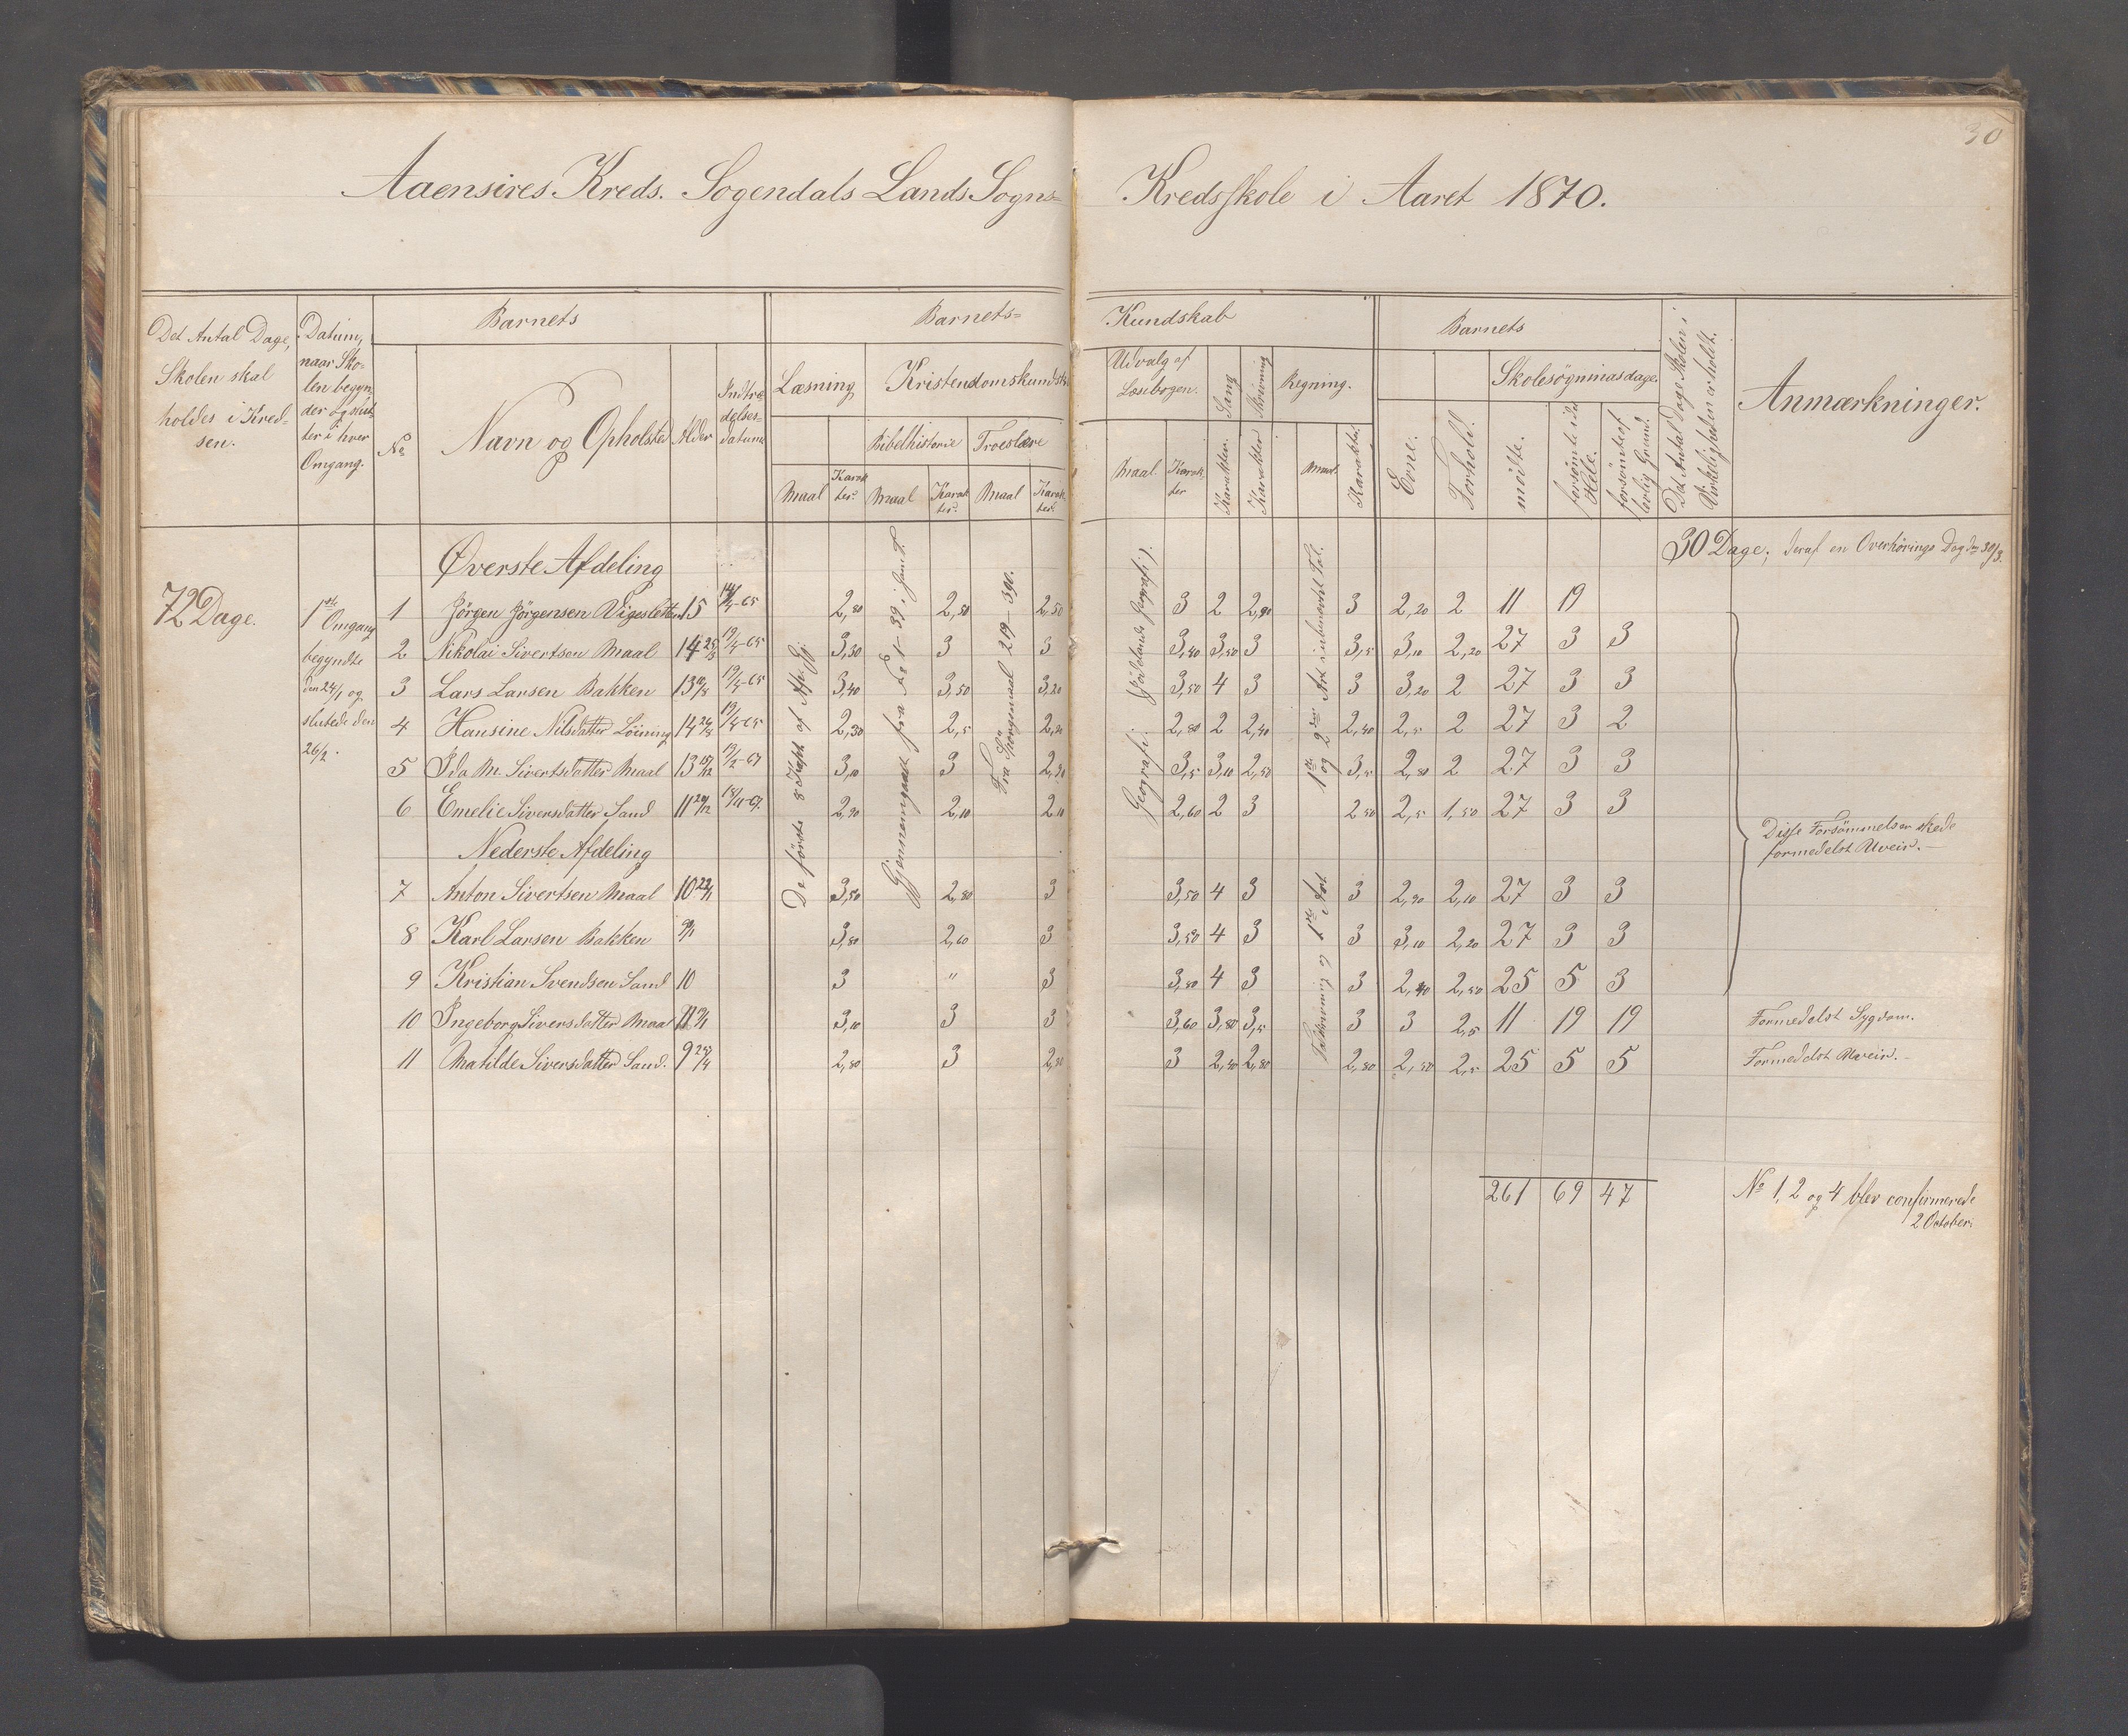 30
Aaensires Kreds. Sogendals Lands Sogns=
Kredsskole i Aaret 1870.
Det Antal Dage,
Skolen skal
holdes i Kred-
sen.
Datum,
naar Sko-
len begyn-
der og slut-
ter i hver
Omgang.
Barnets
No
Navn og Opholsted
Alder
Indtræ-
delses-
datum
Barnets=
Læsning
Kristendomskundsk
Bibelhistorie
Troeslære
Maal
Karak-
ter.
Maal
Karak-
ter.
Maal
Karak-
ter.
Kundskab
Udvalg af
Læsebogen.
Sang
Skrivning
Regning.
Maal
Karak-
ter
Karakter.
Karakter
Maal
Karakter.
Barnets
Evne.
Forhold.
Skolesøgningsdage
mödte.
forsömte i det
Hele.
forsömte af
lovlig Grund.
Det Antal Dage Skolen i
Virkeligheden er holdt.
Anmærkninger.
72 Dage.
1ste Omgang
begyndte
den 24/1 og
sluttede den
26/2.
Øverste Afdeling
30 Dage, deraf en Overhörings Dag den 30/3.
1 Jörgen Jörgensen 15 2,50 2,50 2,50 3 2 2,90 3 2,20 2 11 19
2 Nikolai Sivertsen Maal 14 19/4-65 3,30 3 3 3,40 3,50 3 3,5 3,10 2,20 27 3 3
3 Lars Larsen Bakken 13 19/4-65 3,40 3,50 3,20 3,50 4 3 3 3,20 2 27 3 3
4 Hansine Nilsdatter Löining 14 19/4-65 2,30 2,5 2,30 2,80 2 2,40 2,40 2,5 2 27 3 2
5 Ida M. Sivertsdatter Maal 13 3,10 3 2,90 3,5 3,10 2,50 3,5 2,80 2 27 3 3
6 Emelie Siversdatter Sand 11 2,90 2,10 2,10 2,60 2 3 2,50 2,5 1,50 27 3 3
Nederste Afdeling
Disse Forsömmelser skede
formedelst Uveir.
7 Anton Sivertsen Maal 10 3,50 2,80 3 3,50 4 3 3 2,90 2,10 27 3 3
8 Karl Larsen Bakken 3,50 2,60 3 3,50 4 3 3 3,10 2,20 27 3 3
9 Kristian Svendsen Sand 10 3 " 3 3,50 4 3 3 2,40 2,50 25 5 3
10 Ingeborg Siversdatter Maal 3,10 3 3 3,60 3,80 3,5 3 3 2,5 11 19 19 Formedelst Sygdom.
11 Matilde Siversdatter Sand. 9 2,80 3 2,50 3 2,50 2,80 2,80 2,50 2,5 25 5 5 Formedelst Uveir.
De förste 8 Kapt. af Ap. Gj.
Gjennemgaaet fra § 1-39
Fra Spörgsmaal 219-390.
Geografi:
1ste og 2den Art i ubenævnte Tal.
1ste Art
261 69 47
No 1, 2 og 4 blev confirmerede
2 October.